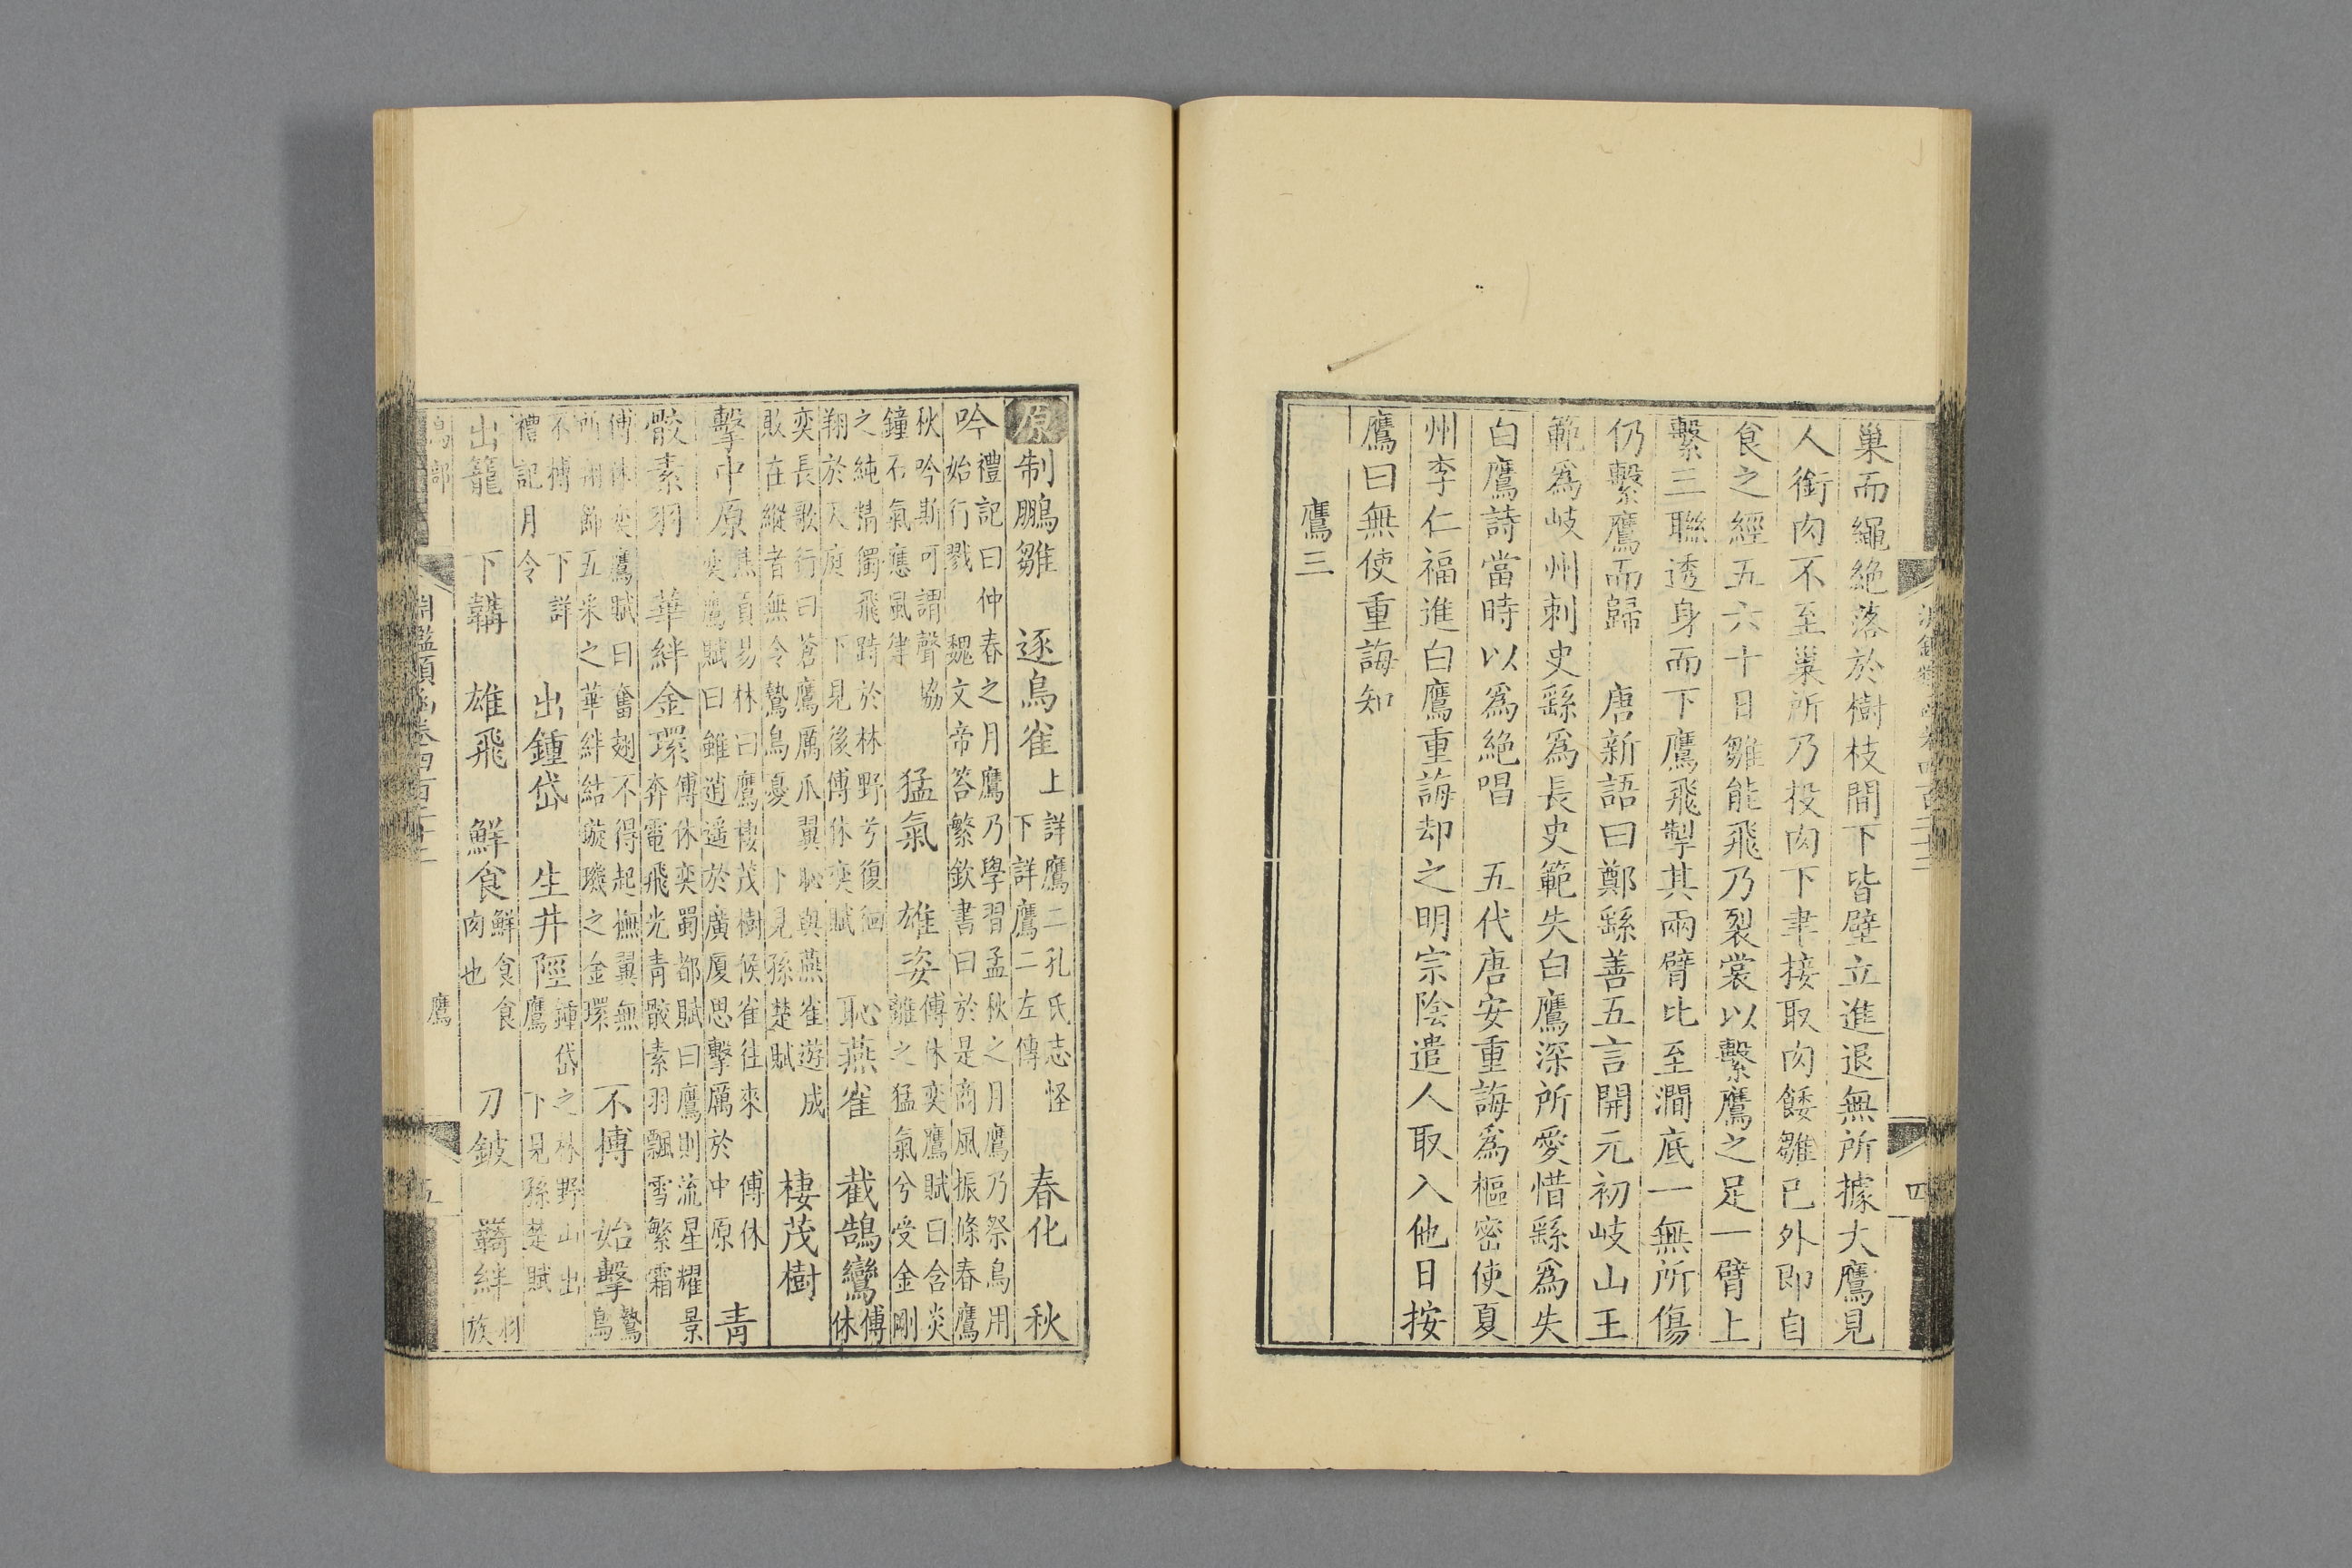 巢而繩絶落於樹枝間下皆壁立進退無所據大鷹見
人銜肉不至巢所乃投肉下聿接取肉餧雛已外即自
食之經五六十日雛能飛乃裂裳以繫鷹之足一臂上
繫三聯透身而下鷹飛掣其兩臂比至澗底一無所傷
仍繫鷹而歸 唐新語曰鄭繇善五言開元初岐山王
範爲岐州刺史繇爲長史範失白鷹深所愛惜繇爲失
白鷹詩當時以爲絶唱 五代唐安重誨爲樞密使夏
州李仁福進白鷹重誨却之明宗陰遣人取入他日按
鷹曰無使重誨知
鷹三
原 制鵬雛 逐鳥雀 上詳鷹二孔氏志怪 下詳鷹二左傳 春化 秋
吟 禮記曰仲春之月鷹乃學習孟秋之月鷹乃祭鳥用
始行戮 魏文帝答繁欽書曰於是商風振條春鷹
秋吟斯可謂聲協
鐘石氣應風律 猛氣 雄姿 傅休奕鷹賦曰含炎
離之猛氣兮受金剛
之純精獨飛跱於林野兮復徊
翔於天庭 下見後傅休奕賦 恥燕雀 截鵠鸞 傅
休
奕長歌行曰蒼鷹厲爪翼恥與燕雀遊成
敗在縱者無令鷙鳥憂 下見孫楚賦 棲茂樹
擊中原 焦貢易林曰鷹棲茂樹候雀往來 傅休
奕鷹賦曰雖逍遥於廣厦思擊厲於中原 青
骹素羽 華絆金環 傅休奕蜀都賦曰鷹則流星耀景
奔電飛光青骹素羽飄雪繁霜
傅休奕鷹賦曰奮翅不得起撫翼無
所翔飾五采之華絆結璇璣之金環 不搏 始擊 鷙
鳥
不搏 下詳
禮記月令 出鍾岱 生井陘 鍾岱之林野山出
鷹 下見孫楚賦
出籠 下韝 雄飛 鮮食 鮮食食
肉也 刀鈹 韝絆 羽
族
鳥部
淵鑑類函卷四百二十二
鷹
五
四